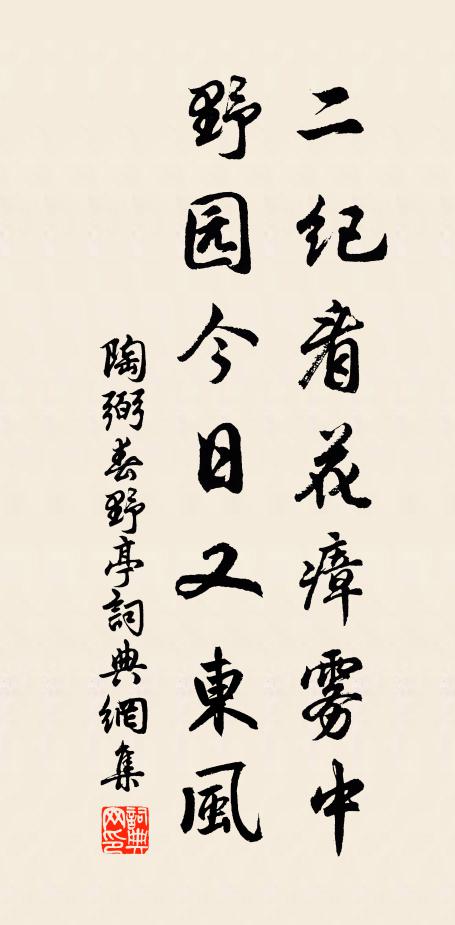 二纪看花瘴雾中
野园今日又東風
陶弼春野亭詞典網集
詞典网印